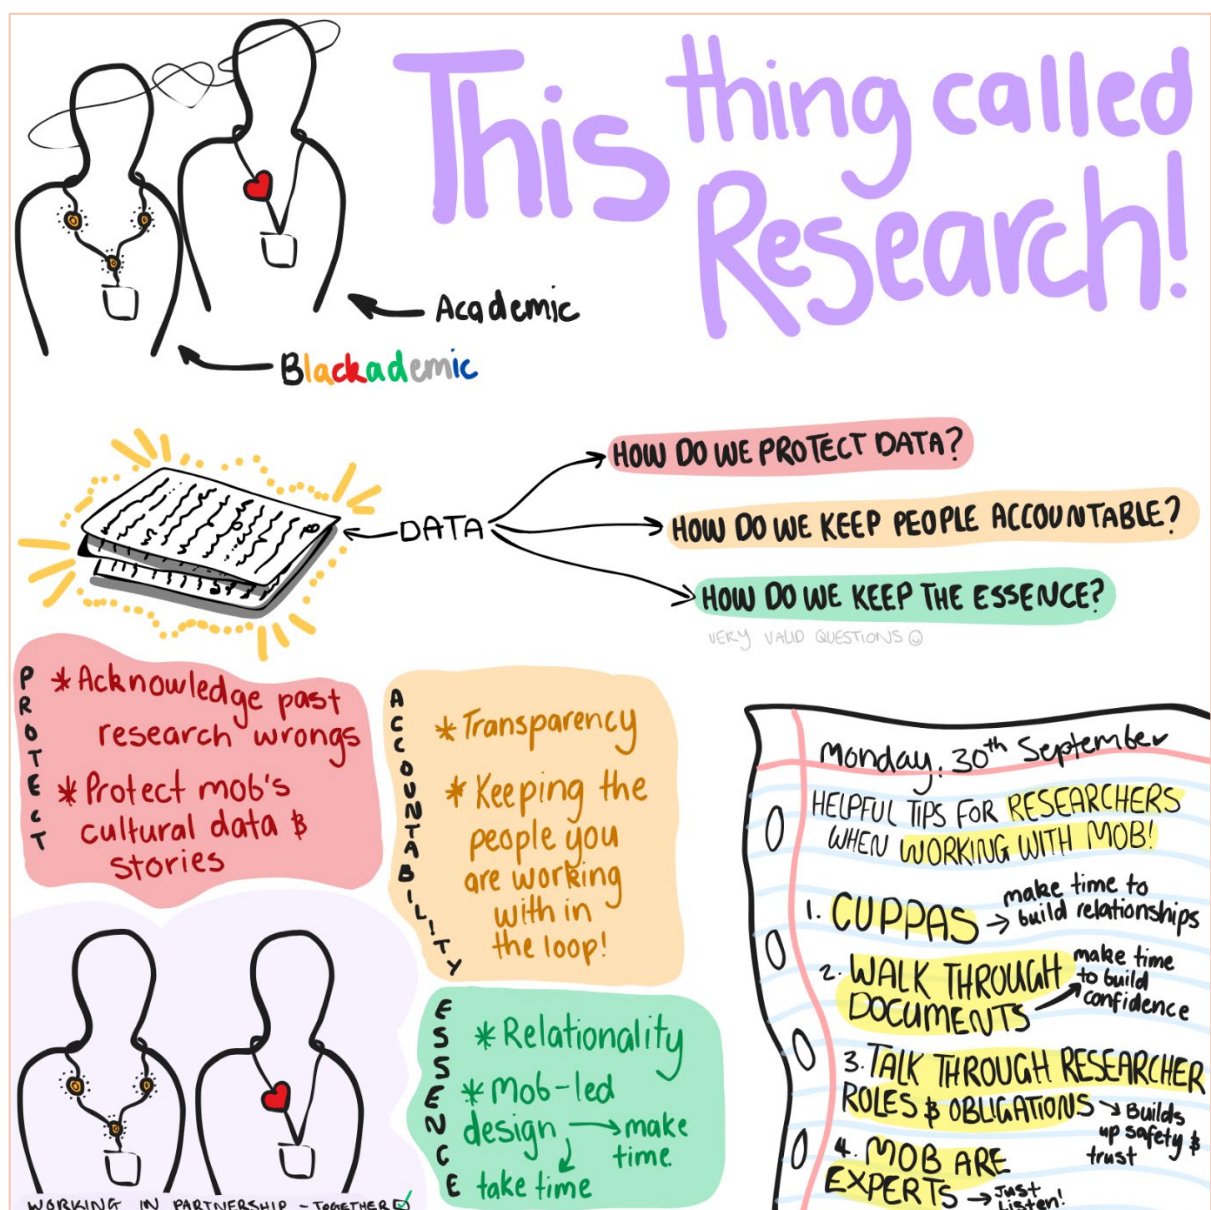 This thing called
Research!
Academic
Blackademic
DATA
HOW DO WE PROTECT DATA?
HOW DO WE KEEP PEOPLE ACCOUNTABLE?
HOW DO WE KEEP THE ESSENCE?
VERY VALID QUESTIONS ☺
PROTECT
* Acknowledge past
research wrongs
* Protect mob's
cultural data &
stories
ACCOUNTABILITY
* Transparency
* Keeping the
people you
are working
with in
the loop!
ESSENCE
* Relationality
* Mob-led
design → make
time
take time
WORKING IN PARTNERSHIP - TOGETHER ☑
Monday, 30th September
HELPFUL TIPS FOR RESEARCHERS
WHEN WORKING WITH MOB!
1. CUPPAS → make time to
build relationships
2. WALK THROUGH
DOCUMENTS
make time
to build
confidence
3. TALK THROUGH RESEARCHER
ROLES & OBLIGATIONS → Builds
up safety &
trust
4. MOB ARE
EXPERTS → Just
Listen!